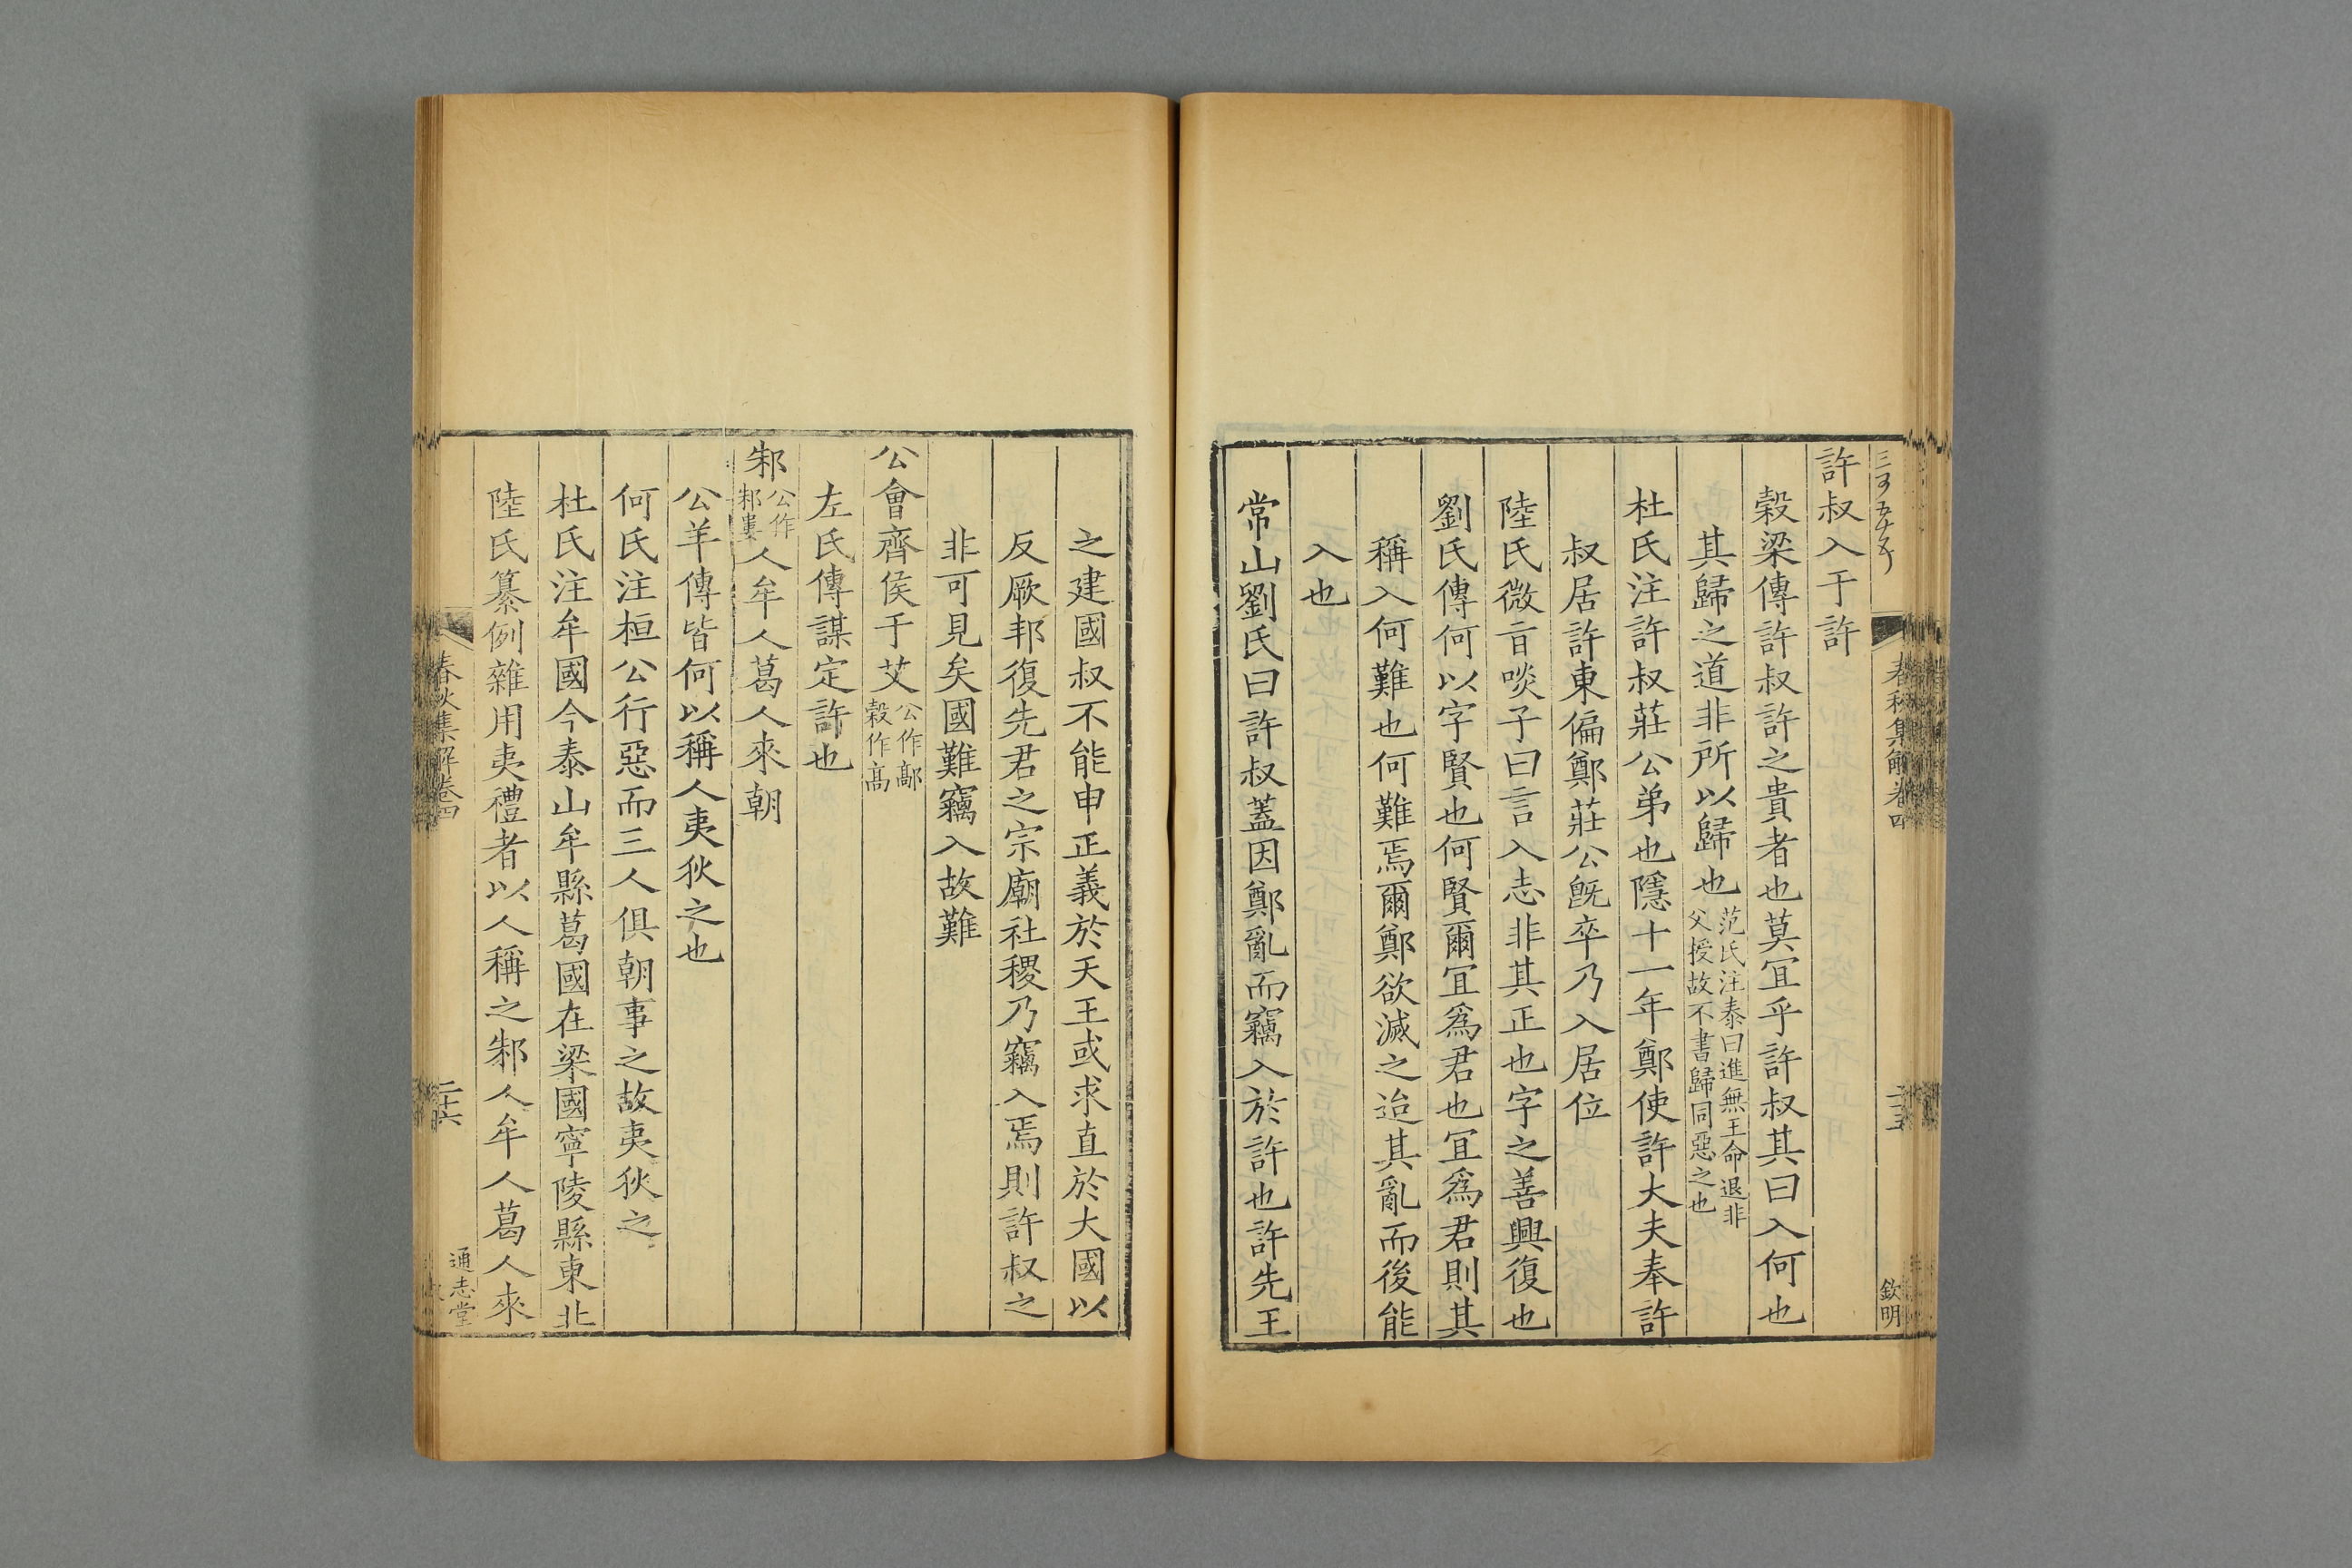 春秋集解卷四
二十五
欽明
許叔入于許
穀梁傳許叔許之貴者也莫宜乎許叔其曰入何也
其歸之道非所以歸也范氏注泰曰進無王命退非父授故不書歸同惡之也
杜氏注許叔莊公弟也隱十一年鄭使許大夫奉許
叔居許東偏鄭莊公旣卒乃入居位
陸氏微旨啖子曰言入志非其正也字之善興復也
劉氏傳何以字賢也何賢爾宜爲君也宜爲君則其
稱入何難也何難焉爾鄭欲滅之迨其亂而後能
入也
常山劉氏曰許叔蓋因鄭亂而竊入於許也許先王
之建國叔不能申正義於天王或求直於大國以
反厥邦復先君之宗廟社稷乃竊入焉則許叔之
非可見矣國難竊入故難
公會齊侯于艾公作鄗穀作蒿
左氏傳謀定許也
邾公作邾婁人牟人葛人來朝
公羊傳皆何以稱人夷狄之也
何氏注桓公行惡而三人俱朝事之故夷狄之
杜氏注牟國今泰山牟縣葛國在梁國寧陵縣東北
陸氏纂例雜用夷禮者以人稱之邾人牟人葛人來
春秋集解卷四
二十六
通志堂